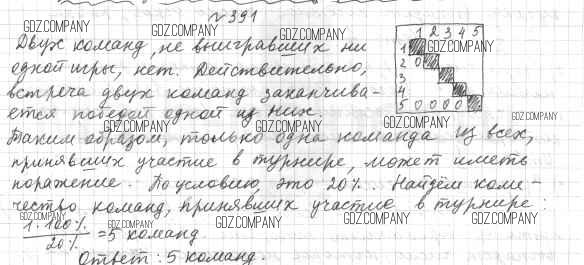 №391
GDZ.COMPANY GDZ.COMPANY GDZ.COMPANY
Двух команд, не выигравших ни
одной игры, нет. Действительно,
встреча двух команд заканчива-
ется победой одной из них.
1 2 3 4 5
1 GDZ.COMPANY
2 0
3
4
5 0 0 0 0
GDZ.COMPANY GDZ.COMPANY GDZ.COMPANY GDZ.COMPANY
Таким образом, только одна команда из всех,
принявших участие в турнире, может иметь
поражение. По условию, это 20%. Найдём коли-
чество команд, принявших участие в турнире:
GDZ.COMPANY GDZ.COMPANY GDZ.COMPANY GDZ.COMPANY GDZ.COMPANY
1·100%
20%
=5 команд.
Ответ: 5 команд.